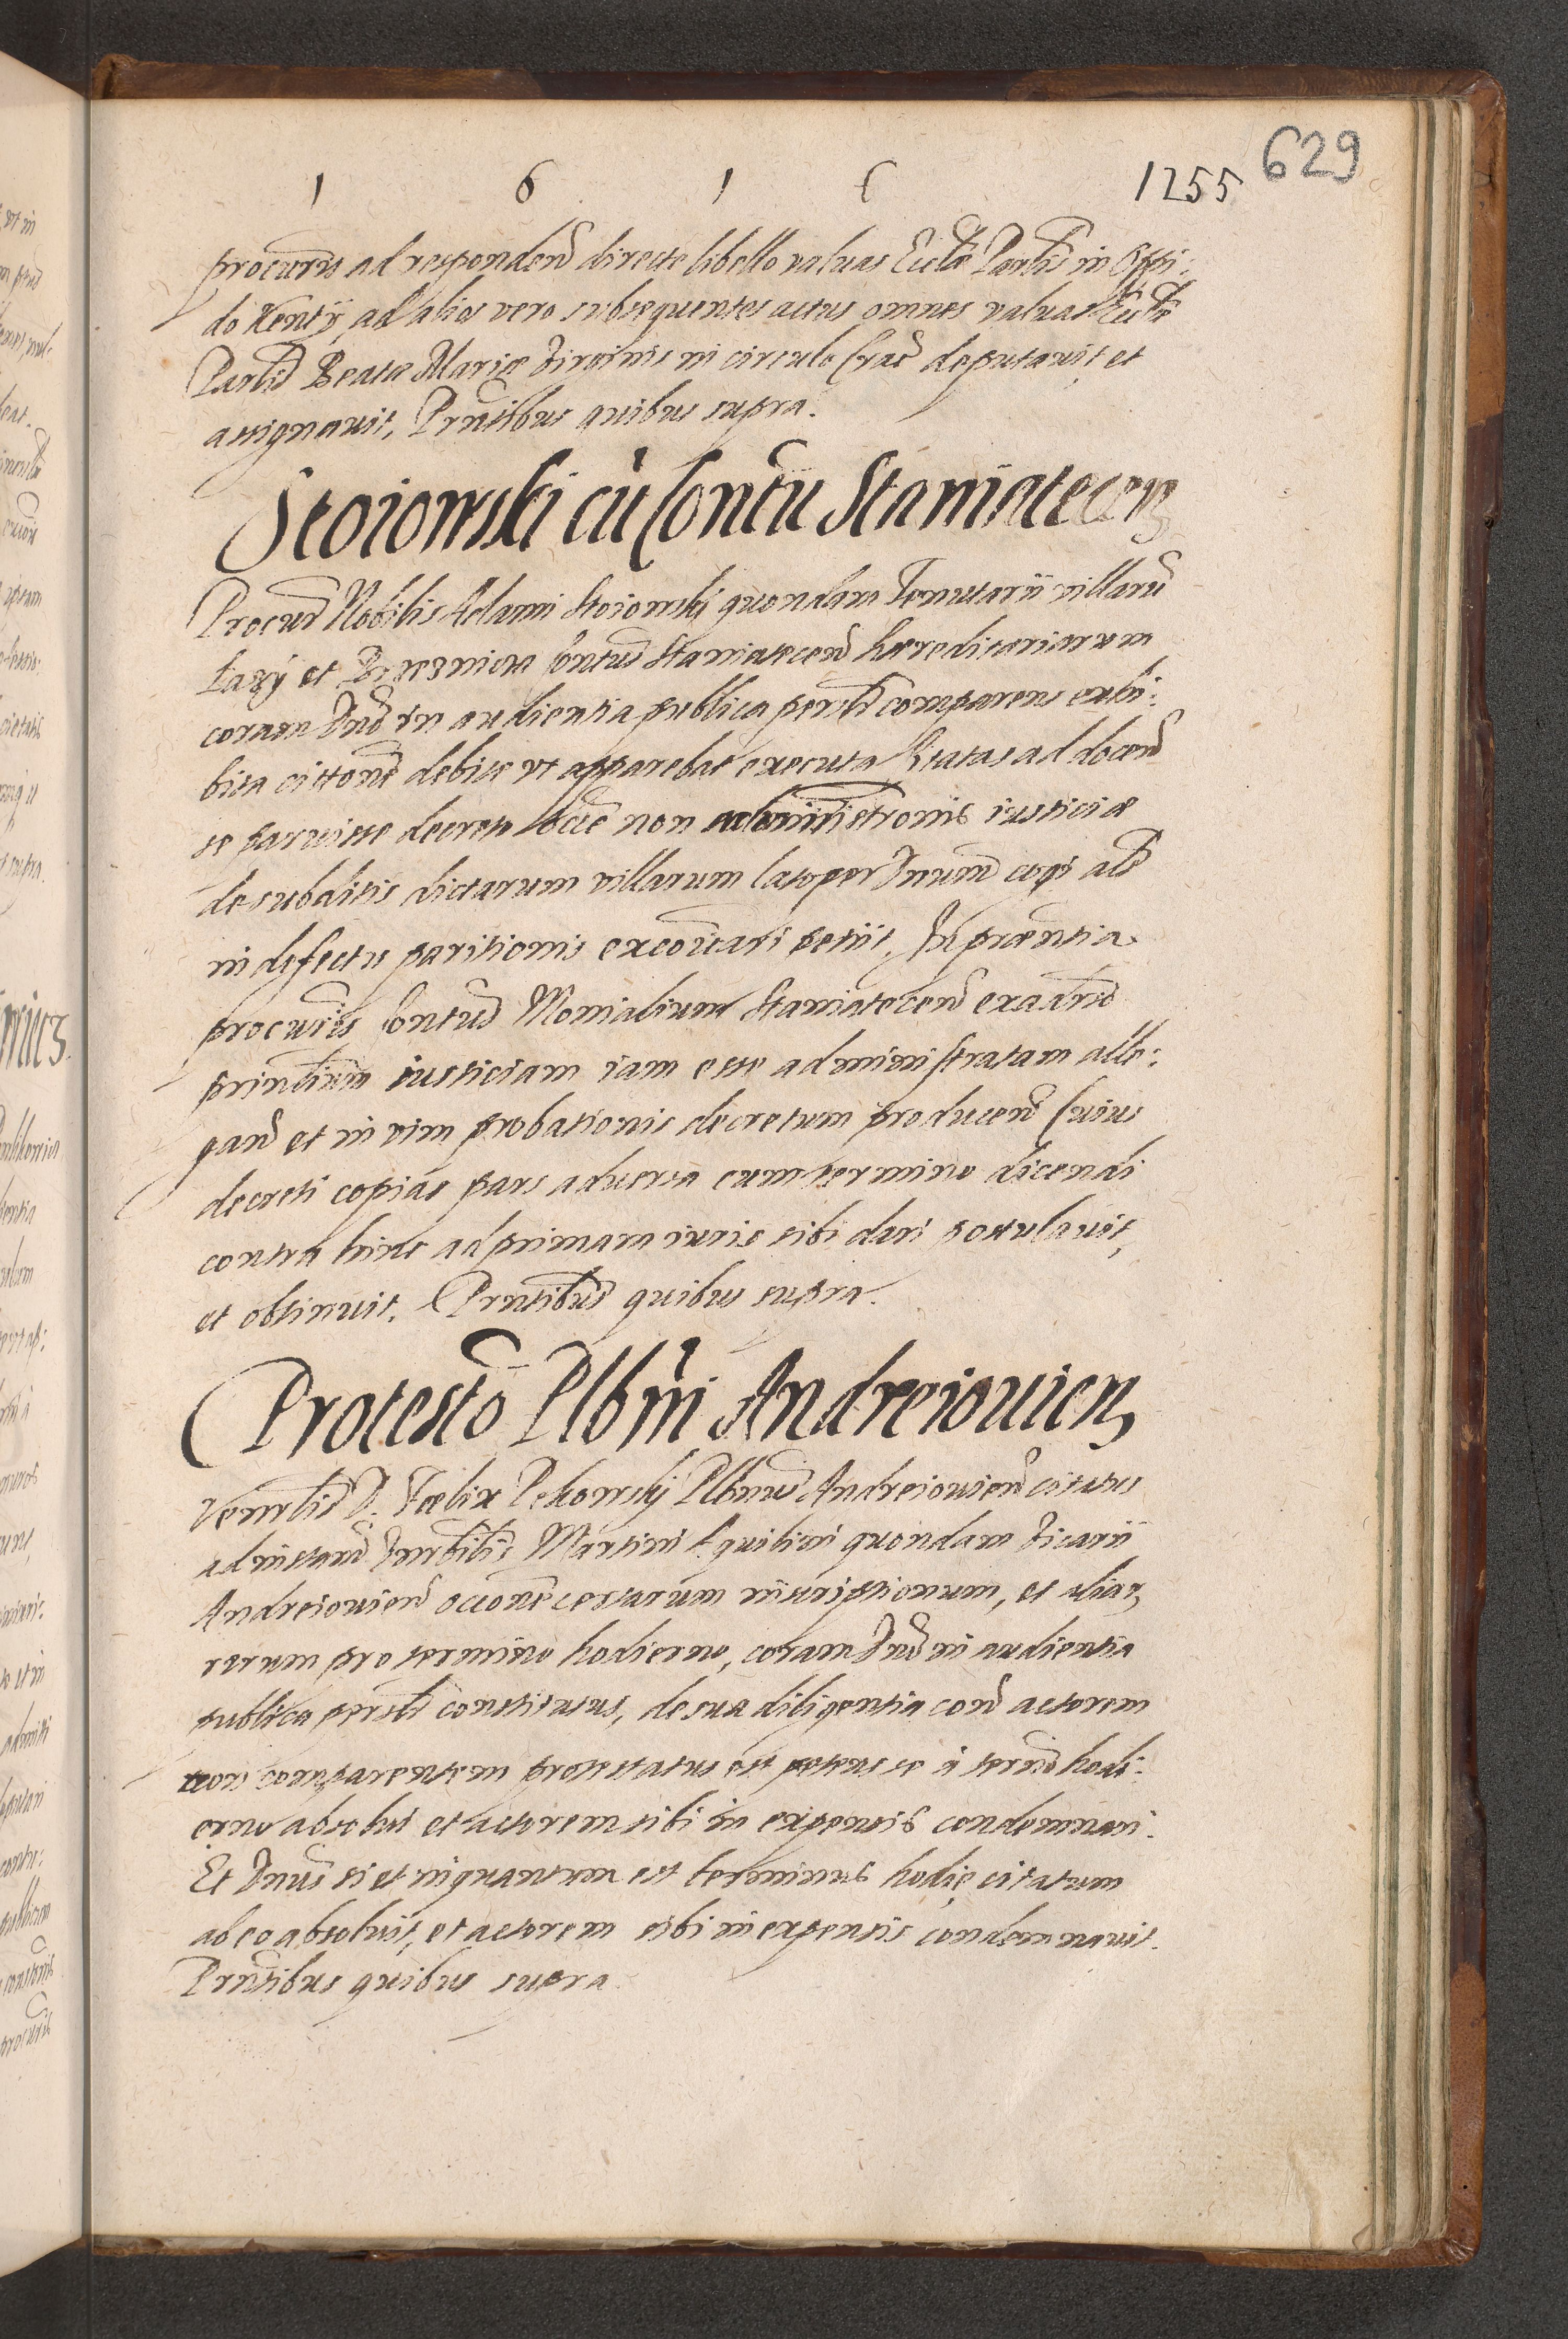 1 6 1 6 1255 629
procuris ad respondend directe libello valuas Eccle Parlis in Oppi:
do Kenty, ad alios vero subsequentes actus omnes valuas Eccle
Parlis Beata Mariæ Virginis in circulo Crac deputauit et
assignauit, Prntibus quibus supra.
Stoiowski cu Contu Staniatecen
Procur Nobilis Adami Stoiowski quondam Tenutarii villaru
Lazy et Brzesnica Contus Staniatecen hæreditariarum
coram Dno in audientia publica persl comparens exhi:
bita cittone debite vt apparebat executa Citatas ad docend
se paruisse decreto occe non administronis iusticiæ
de subditis dictarum villarum lato per Dnum cogi ale
in defectu paritionis excoicari petiit, In præntia
procuris Contus Monialium Staniatecen ex aduerso
printium iusticiam iam esse administratam alle:
gan et in vim probationis decretum producen Cuius
decreti copias pars aduersa cum termino dicendi
contra hinc ad primam iuris sibi dari postulauit,
et obtinuit. Prntibus quibus supra.
Protesto Plbni Andreiouien
Venrlis D. Fœlix Pekowskj Plbnus Andreiouien citatus
ad instan Honrbilis Martini quondam Vicarii
Andreiouien occone certarum inscriptionum, et aliar
rerum pro termino hodierno, coram Dno in audientia
publica persl constitutus, de sua diligentia con actorem
non comparentem protestatus est petens se à termo hodi:
erno absolui et actorem sibi in expensis condemnari.
Et Dnus si et inquantum est terminus hodie citatum
ab eo absoluit, et actorem sibi in expensis condemnauit.
Prntibus quibus supra